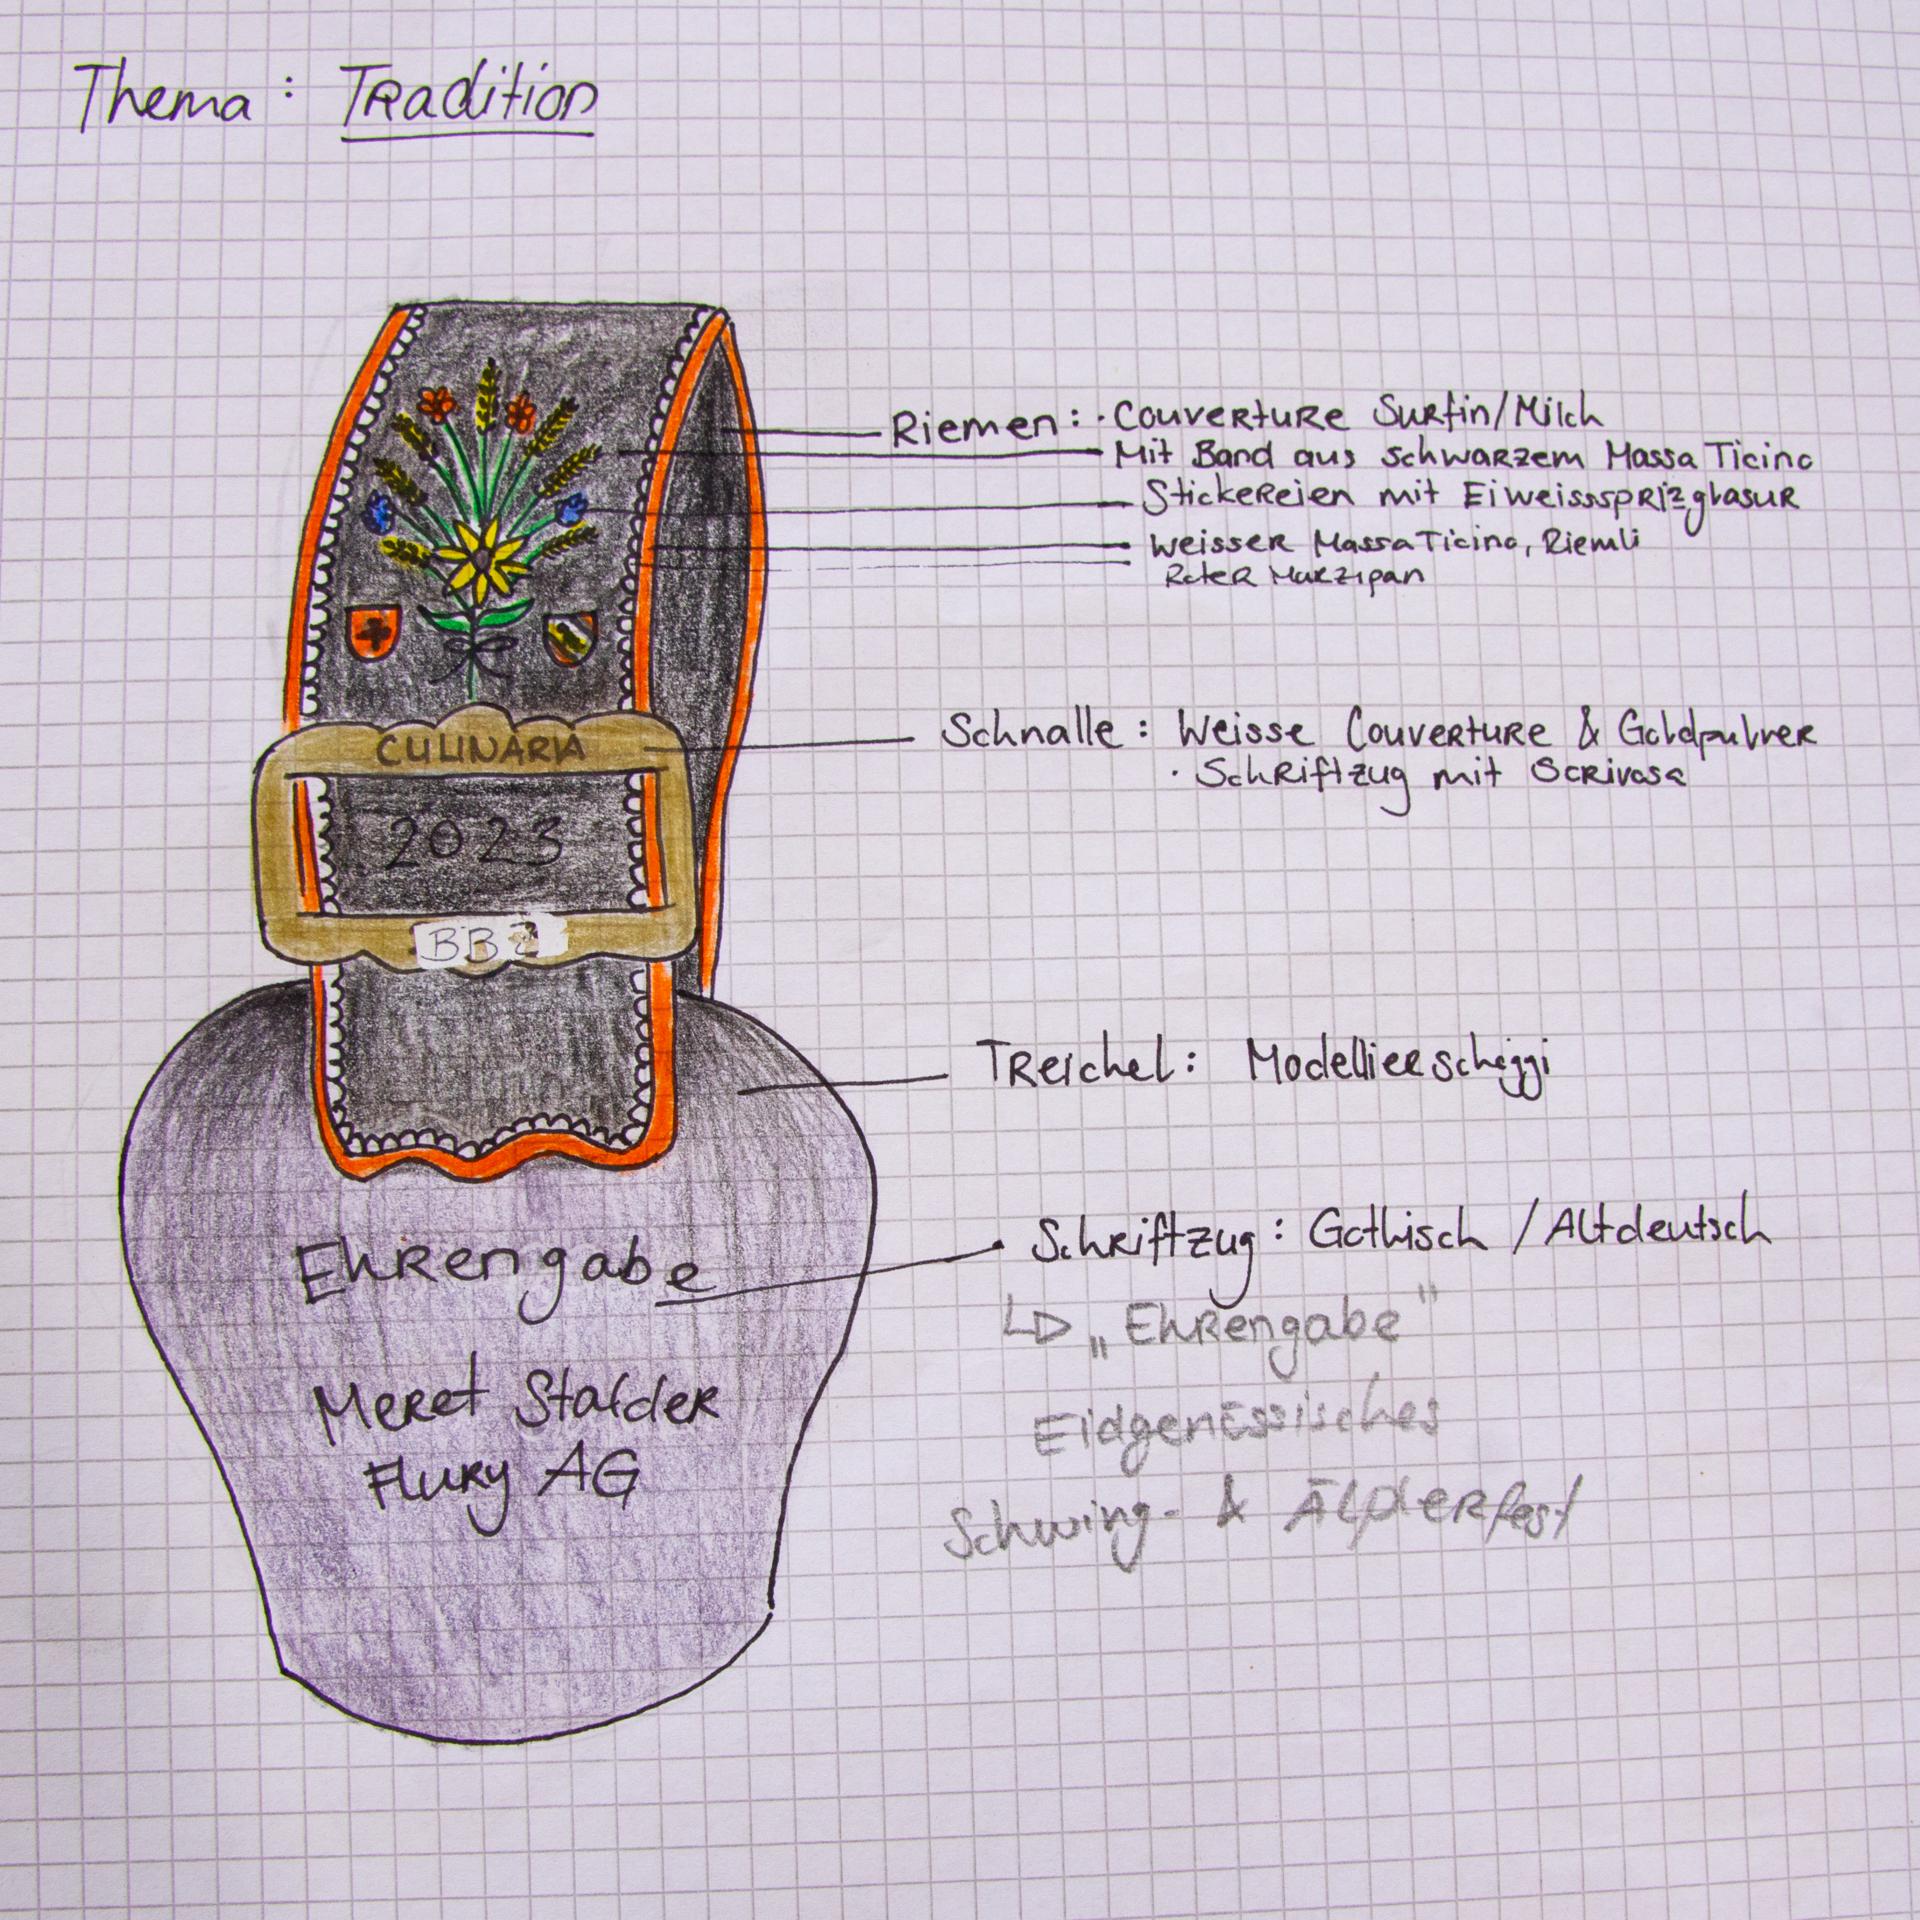 Thema: Tradition
Riemen: · Couverture Surfin/Milch
Mit Band aus schwarzem Massa Ticino
Stickereien mit Eiweissspritzglasur
Weisser Massa Ticino, Riemli
Roter Marzipan
CULINARIA
Schnalle: Weisse Couverture & Goldpulver
· Schriftzug mit Scrivosa
2023
BBZ
Treichel: Modellierschoggi
Ehrengabe
Schriftzug: Gothisch / Altdeutsch
„Ehrengabe“
Meret Stalder
Eidgenössisches
Flury AG
Schwing- & Älplerfest